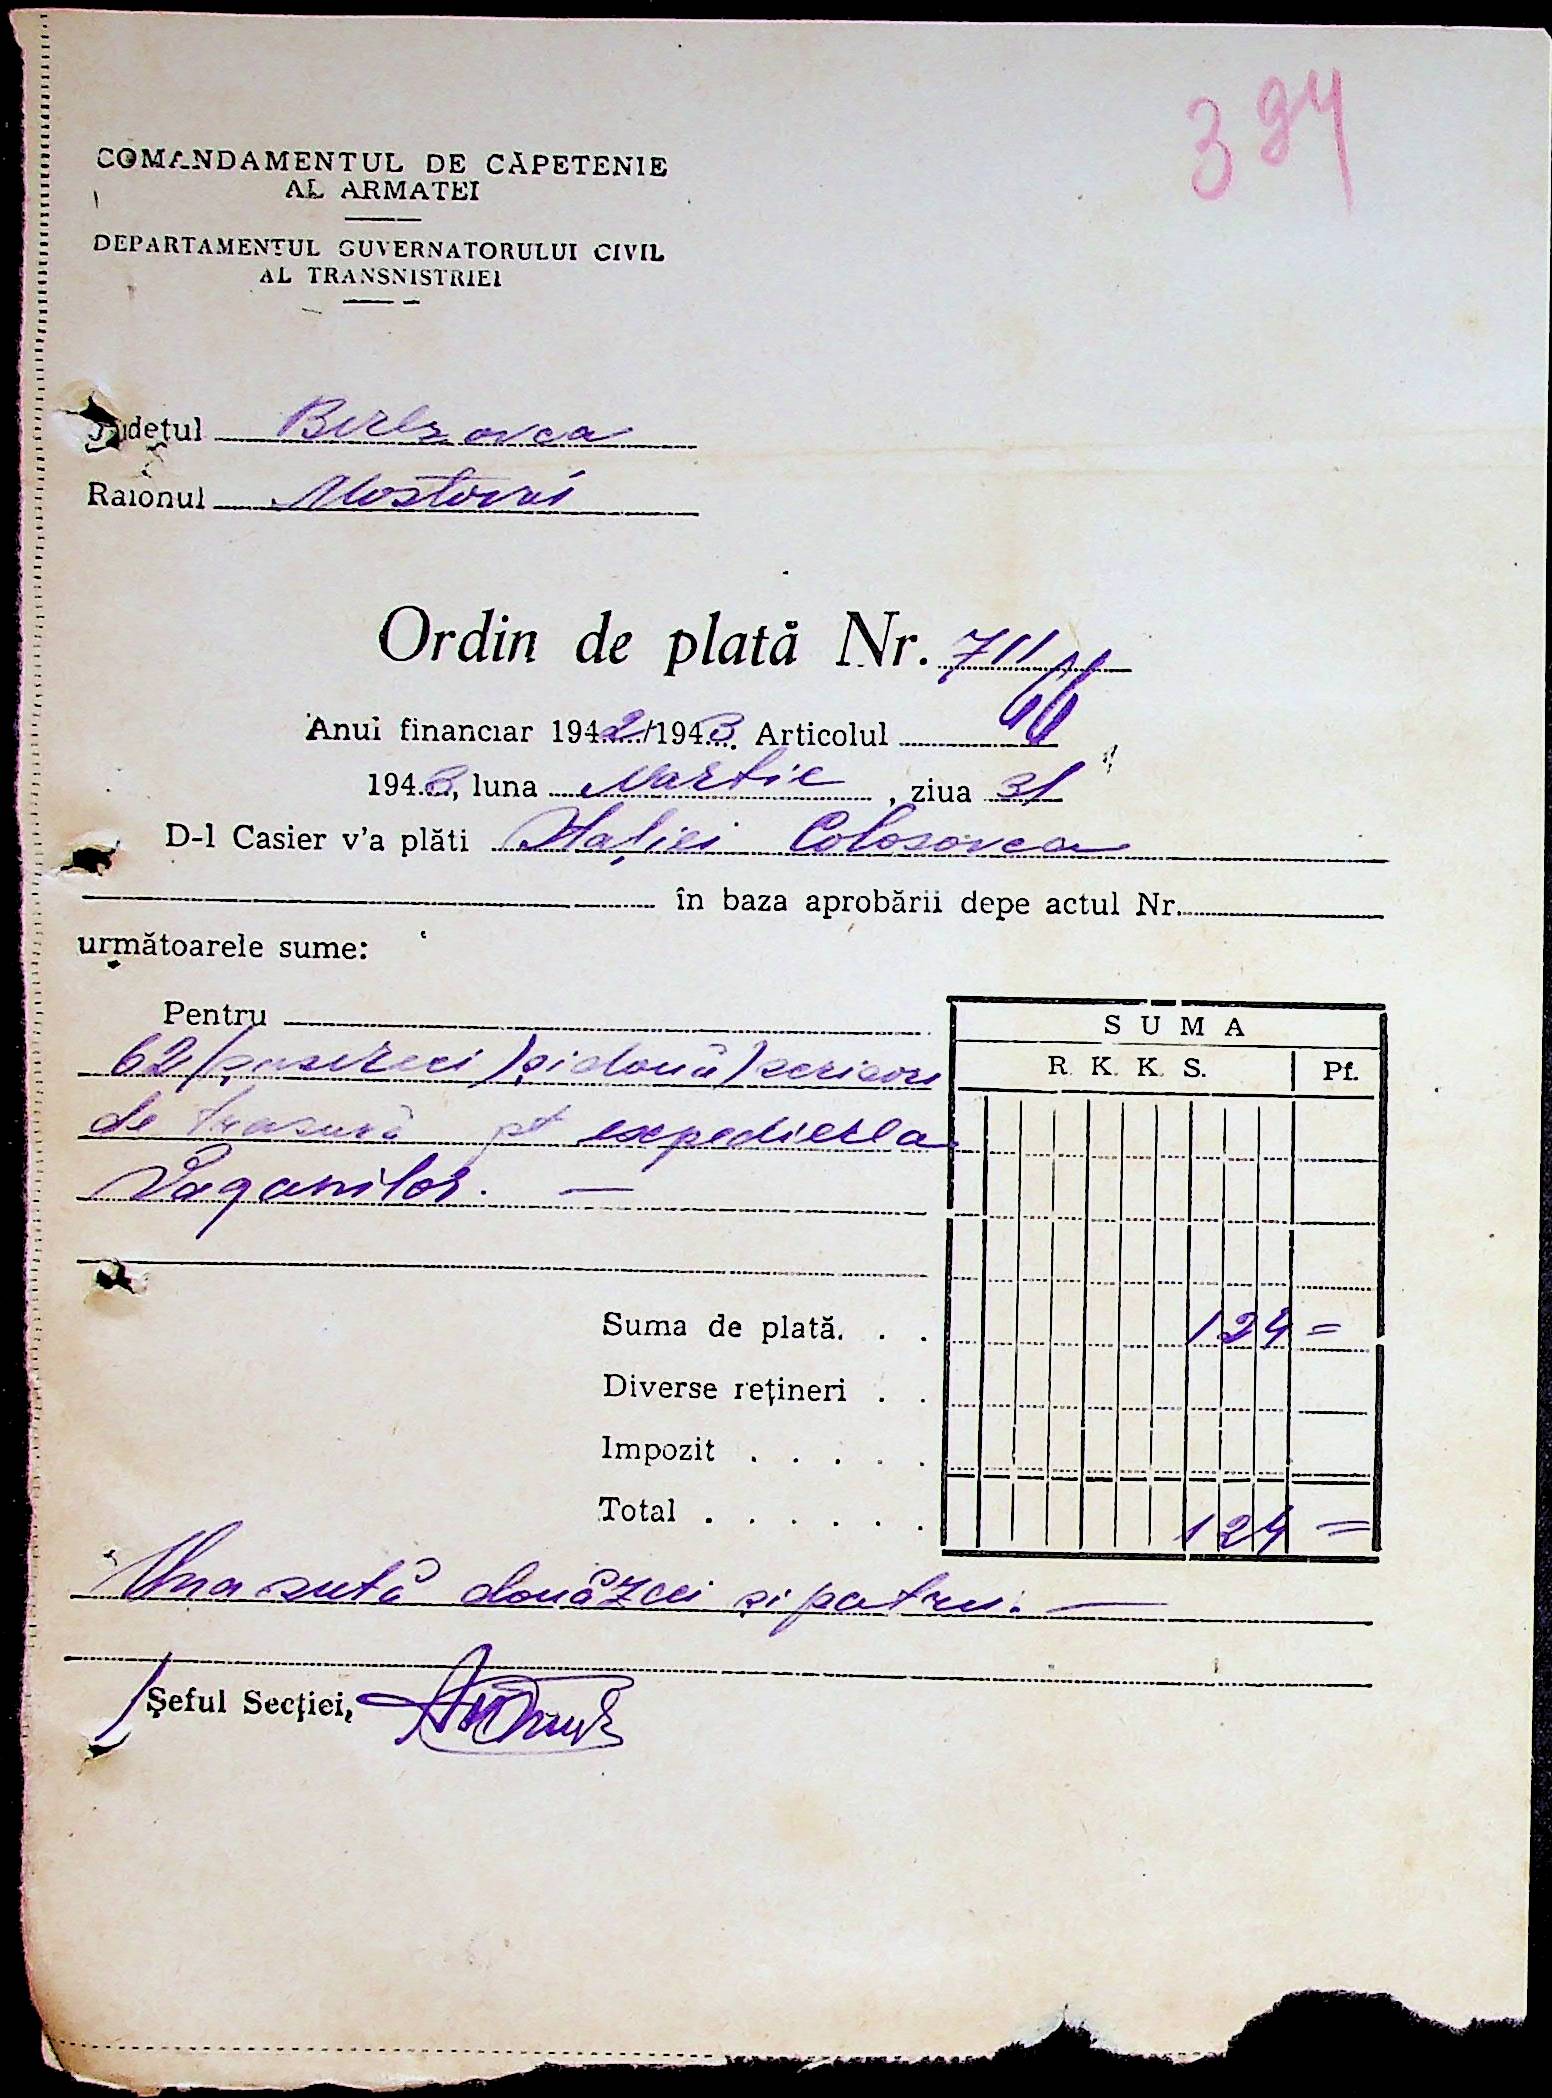 394
COMANDAMENTUL DE CĂPETENIE
AL ARMATEI
DEPARTAMENTUL GUVERNATORULUI CIVIL
AL TRANSNISTRIEI
Județul Berezovca
Raionul Mostovoi
Ordin de plată Nr. 711
Anul financiar 1942/1943. Articolul 66
1943, luna Martie, ziua 31
D-l Casier v'a plăti Stației Colosovca
în baza aprobării depe actul Nr.
următoarele sume:
Pentru
62/șasezeci și două/scrisori
de trasură pt expedierea
Vagonilor. —
SUMA
R. K. K. S. Pf.
Suma de plată. . . 124 =
Diverse rețineri . .
Impozit . . . . .
Total . . . . . . 124 =
Una sută douăzeci și patru. —
Șeful Secției,